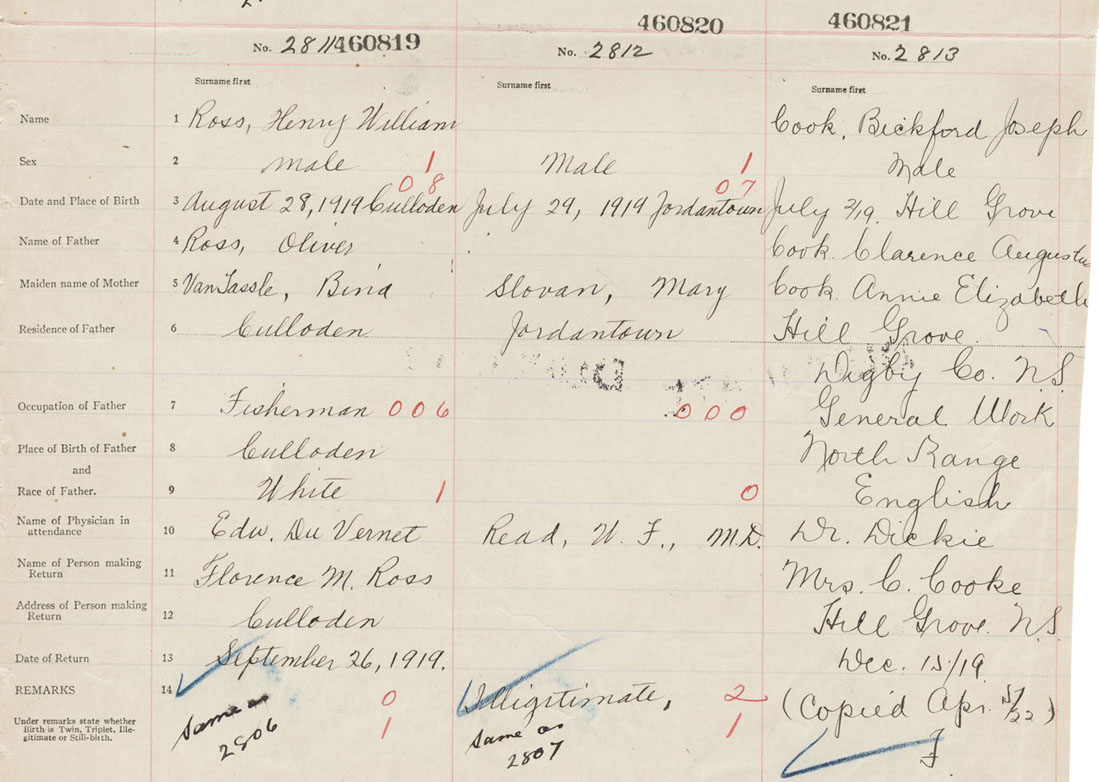 460820 460821
No. 2811 460819 No. 2812 No. 2813
Surname first Surname first Surname first
Name 1 Ross, Henry William Cook, Bickford Joseph
Sex 2 male 1 Male 1 Male
08 07
Date and Place of Birth 3 August 28, 1919 Culloden July 29, 1919 Jordantown July 2/19. Hill Grove
Name of Father 4 Ross, Oliver Cook. Clarence Augustu
Maiden name of Mother 5 VanTassle, Bina Slovan, Mary Cook Annie Elizabeth
Residence of Father 6 Culloden Jordantown Hill Grove
Digby Co. N.S
Occupation of Father 7 Fisherman 006 000 General Work
Place of Birth of Father 8 Culloden North Range
and
Race of Father. 9 White 1 0 English
Name of Physician in
attendance 10 Edw. Du Vernet Read, W. F., M.D. Dr. Dickie
Name of Person making
Return 11 Florence M. Ross Mrs. C. Cooke
Address of Person making
Return 12 Culloden Hill Grove. N.S.
Date of Return 13 September 26, 1919. Dec. 15/19
REMARKS 14 0 Illigitimate, 2 (Copied Apr. /22)
Under remarks state whether
Birth is Twin, Triplet, Ille-
gitimate or Still-birth.
same as 1 same as 1
2806 2807